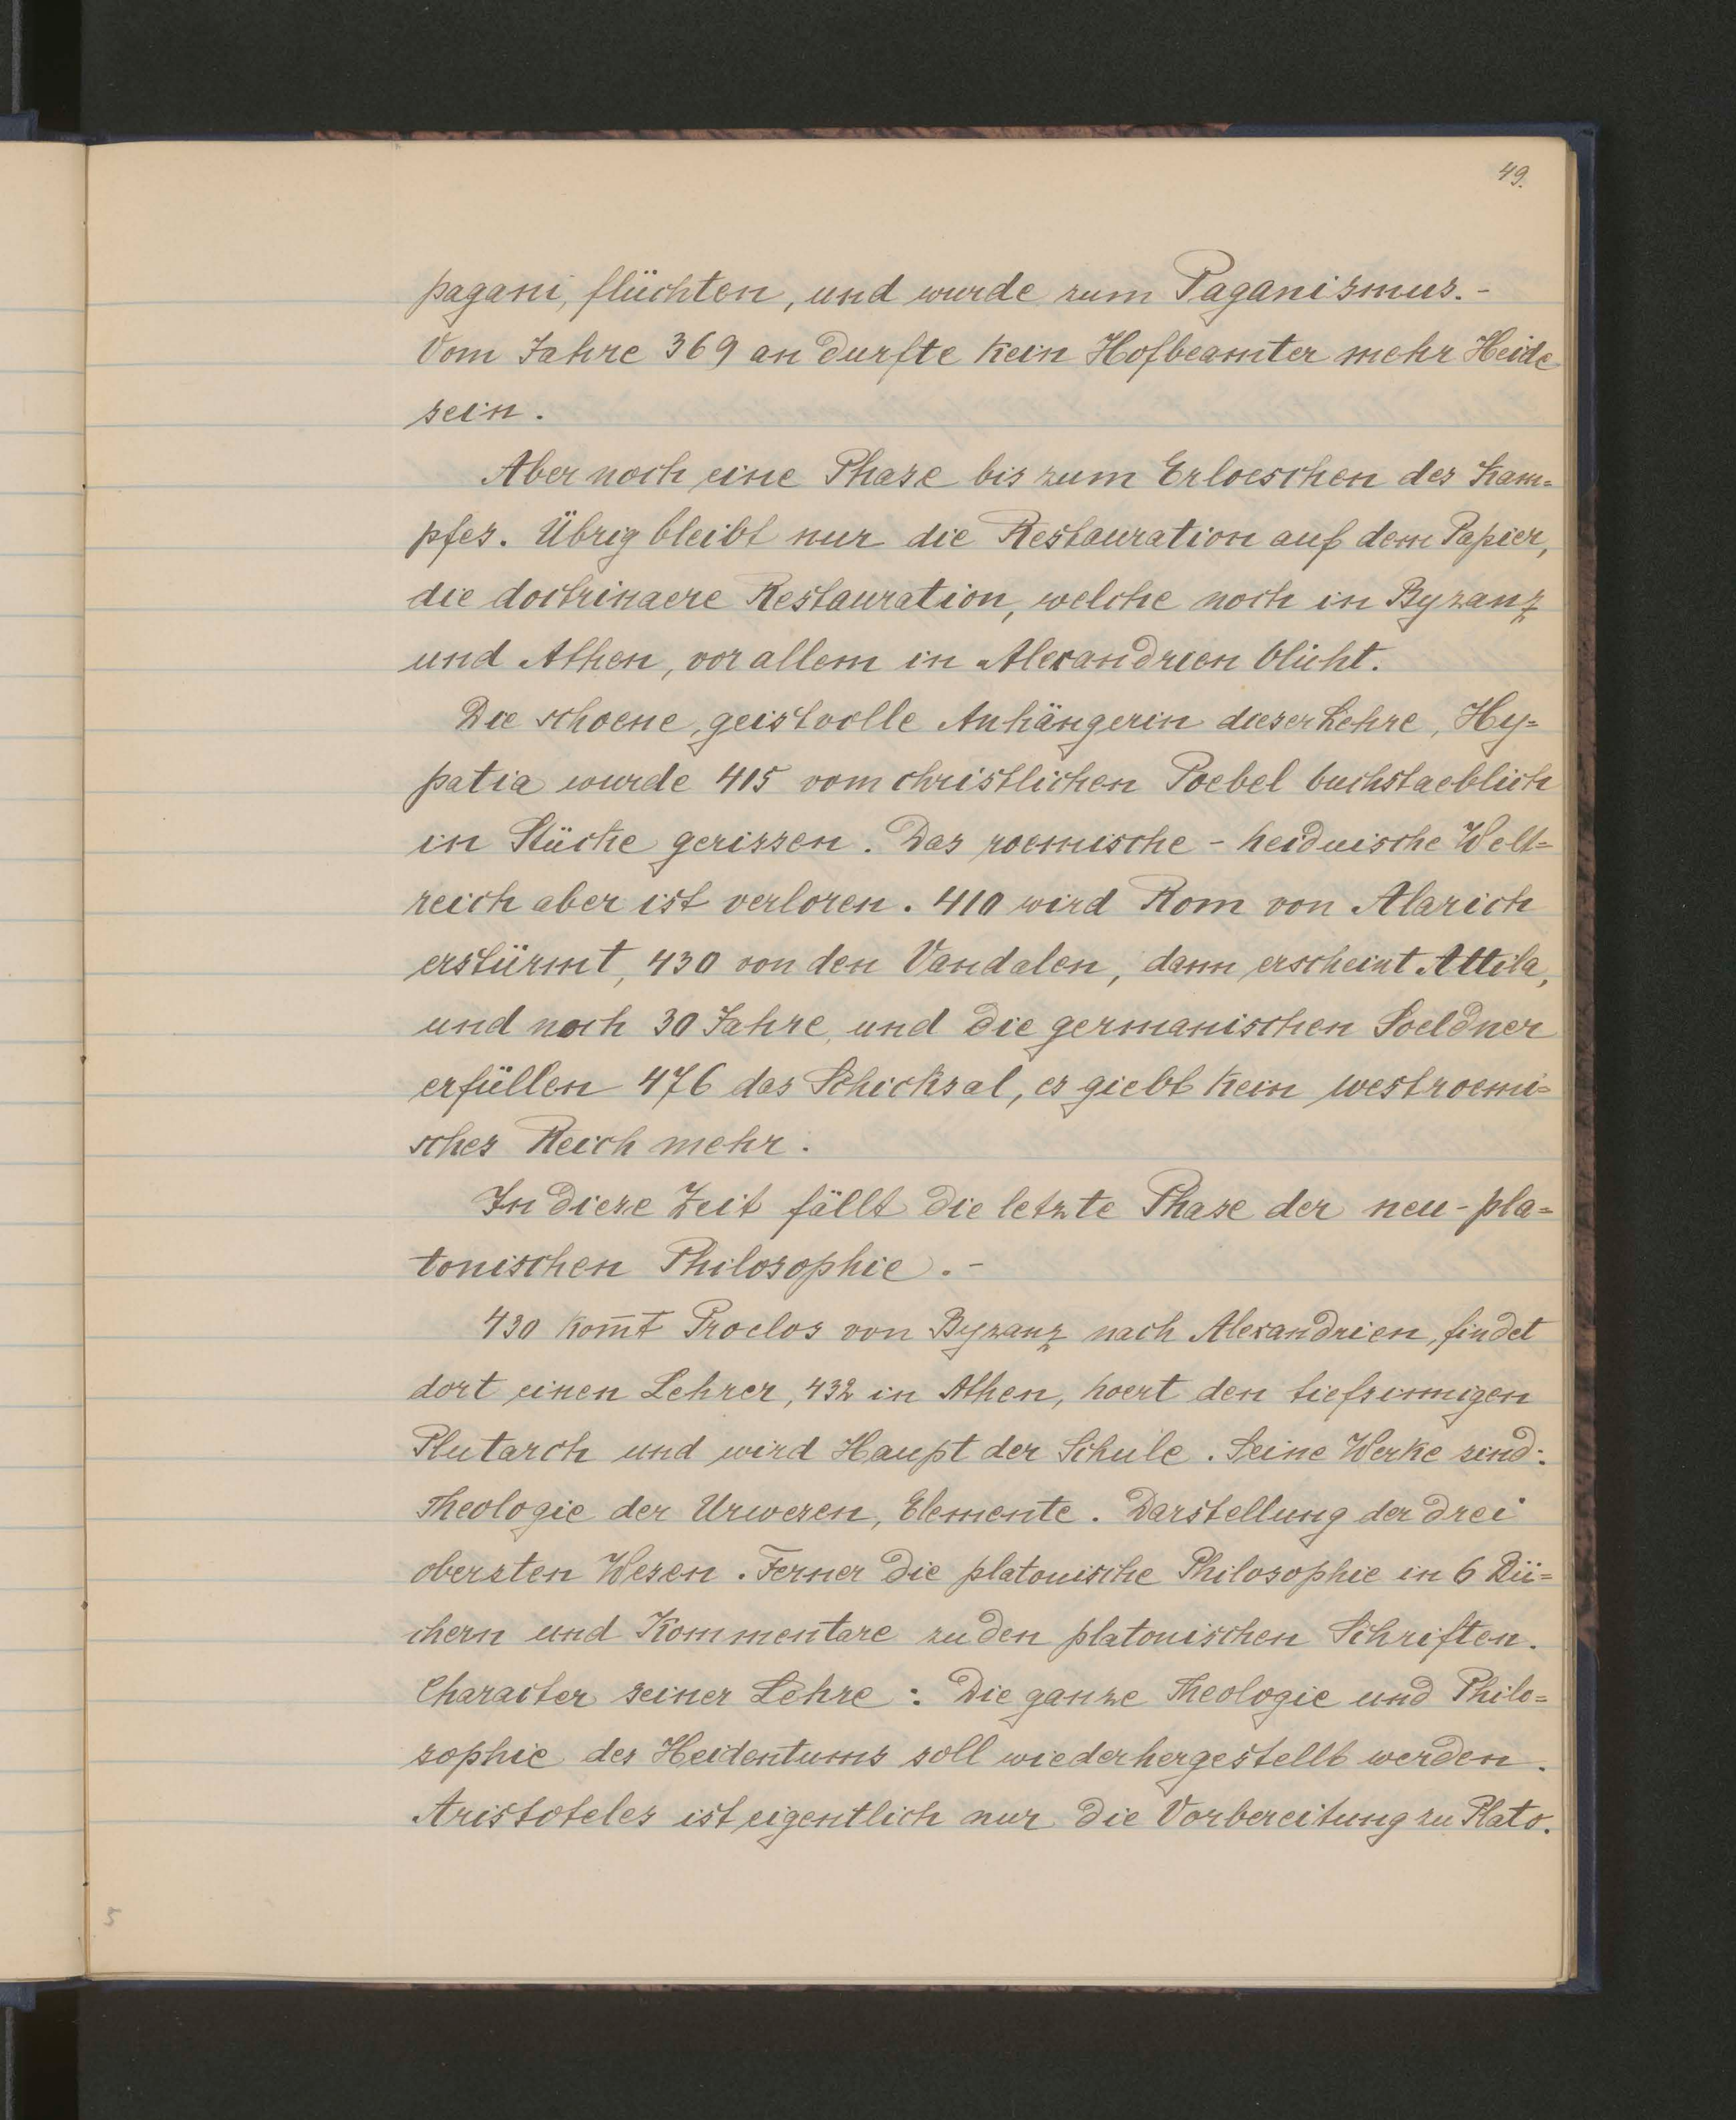 49.
pagani, flüchten, und wurde zum Paganismus. -
Vom Jahre 369 an durfte kein Hofbeamter mehr Heide
sein.
Aber noch eine Phase bis zum Erloeschen des Kam=
pfes. Übrig bleibt nur die Restauration auf dem Papier,
die doctrinaere Restauration, welche noch in Byzanz
und Athen, vor allem in Alexandrien blüht.
Die schoene, geistvolle Anhängerin dieser Lehre, Hy=
patia wurde 415 vom christlichen Poebel buchstaeblich
in Stücke gerissen. Das roemische - heidnische Welt=
reich aber ist verloren. 410 wird Rom von Alarich
erstürmt, 430 von den Vandalen, dann erscheint Attila,
und noch 30 Jahre, und die germanischen Soeldner
erfüllen 476 das Schicksal, es giebt kein westroemi=
sches Reich mehr.
In diese Zeit fällt die letzte Phase der neu-pla=
tonischen Philosophie. -
430 kom̅t Proclos von Byzanz nach Alexandrien, findet
dort einen Lehrer, 432 in Athen, hoert den tiefsinnigen
Plutarch und wird Haupt der Schule. Seine Werke sind:
Theologie der Urwesen, Elemente. Darstellung der drei
obersten Wesen. Ferner die platonische Philosophie in 6 Bü=
chern und Kommentare zu den platonischen Schriften.
Character seiner Lehre: Die ganze Theologie und Philo=
sophie des Heidentums soll wiederhergestellt werden.
Aristoteles ist eigentlich nur die Vorbereitung zu Plato.
5